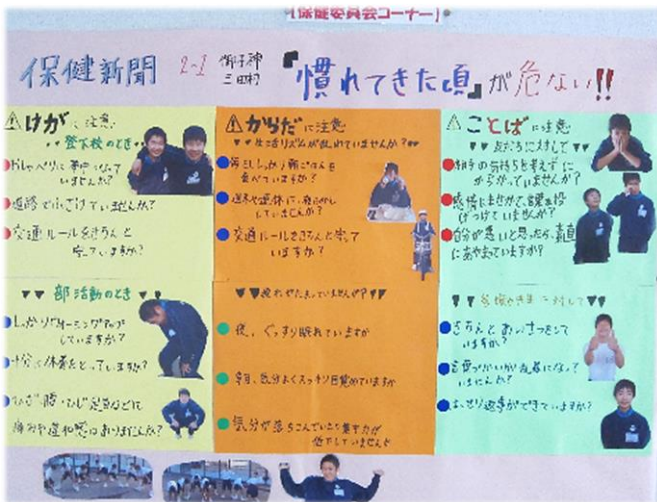 【保健委員会コーナー】
保健新聞
2-1
三田村
『慣れてきた頃』が危ない!!
けがに注意
登下校のとき
おしゃべりに夢中になって
いませんか?
道路でふざけていませんか?
交通ルールをきちんと
守っていますか?
部活動のとき
しっかりウォーミングアップ
していますか?
十分に休養をとっていますか?
ひざ・腰・ひじ・足首などに
痛みや違和感はありませんか?
からだに注意
生活リズムが乱れていませんか?
毎日しっかり朝ごはんを
食べていますか?
週末や連休に、夜ふかし
していませんか?
交通ルールをきちんと守って
いますか?
疲れがたまっていませんか?
夜、ぐっすり眠れていますか
毎日、気分よくスッキリ目覚めていますか
気分が落ちこんでいたり集中力が
低下していませんか
ことばに注意
友だちに対して
相手の気持ちを考えずに
からかっていませんか?
感情にまかせて、言葉を投
げつけていませんか?
自分が悪いと思ったら、素直
にあやまっていますか?
に対して
きちんとあいさつをして
いますか?
言葉づかいが乱暴になって
いませんか?
はっきり返事ができていますか?